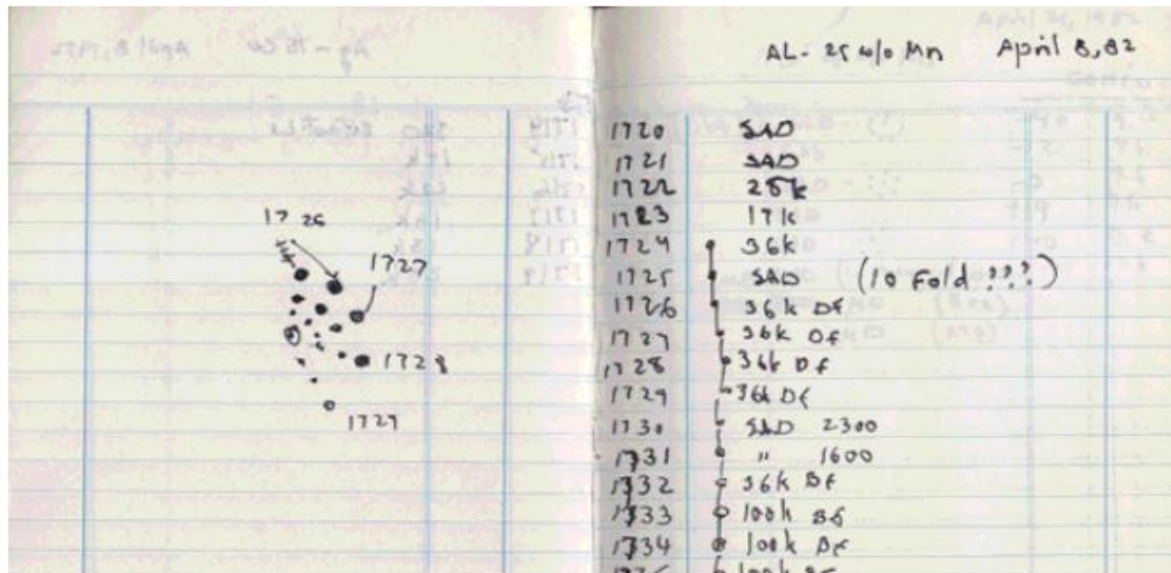 AL- 25 w/o Mn April 8, 82
1720 SAD
1721 SAD
1722 25k
1723 17k
1724 36k
1725 SAD (10 Fold ???)
1726 36k Df
1727 36k Df
1728 36k Df
1729 36k Df
1730 SAD 2300
1731 " 1600
1732 36k Bf
1733 100k Bf
1734 100k Df
1726
1727
1728
1729